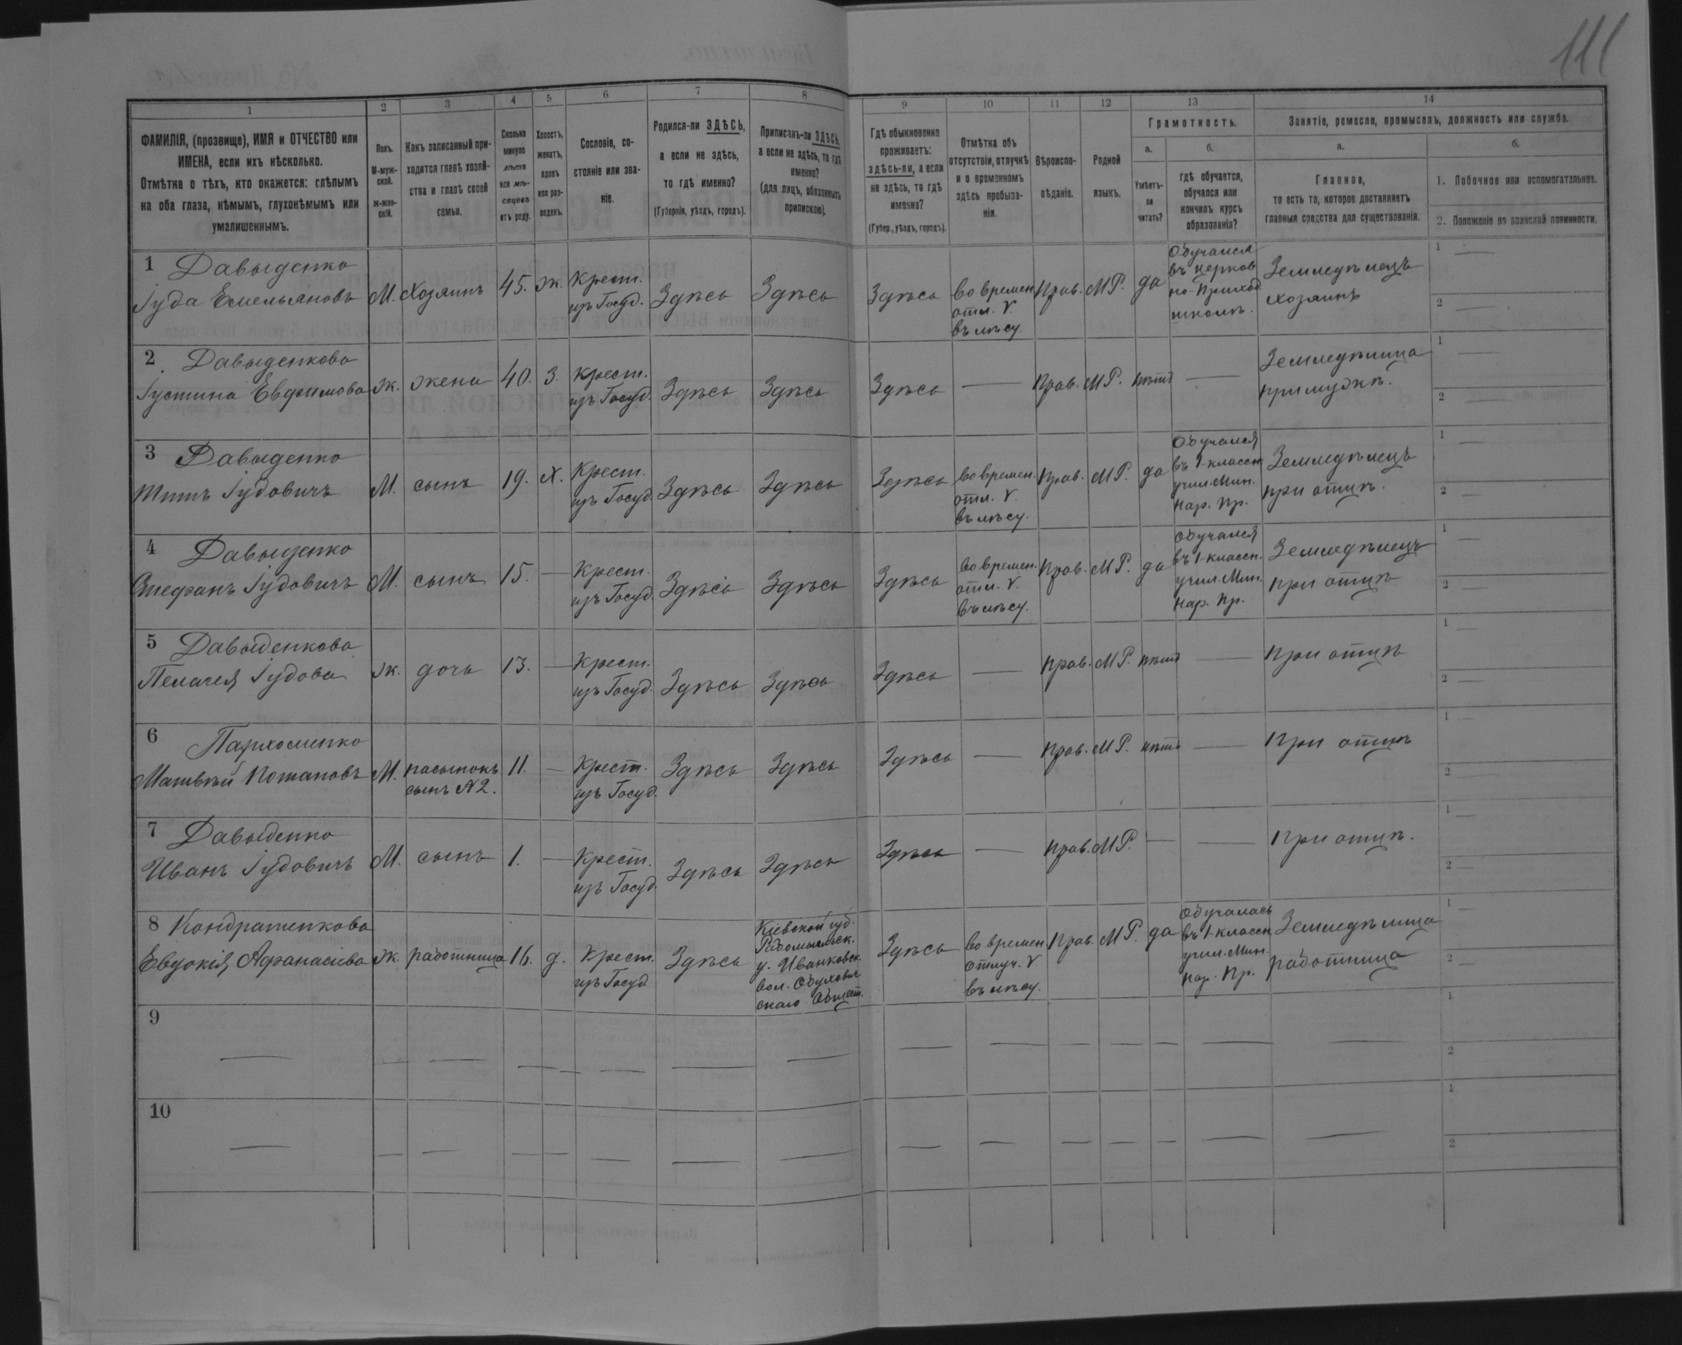 111
1
2
3
4
5
6
7
8
9
10
11
12
13
14
ФАМИЛІЯ, (прозвище), ИМЯ и ОТЧЕСТВО или
ИМЕНА, если ихъ нѣсколько.
Отмѣтка о тѣхъ, кто окажется: слѣпымъ
на оба глаза, нѣмымъ, глухонѣмымъ или
умалишеннымъ.
Полъ.
М-муж-
ской.
ж-жен-
скій.
Какъ записанный при-
ходится главѣ хозяй-
ства и главѣ своей
семьи.
Сколько
минуло
лѣтъ
или мѣ-
сяцевъ
отъ роду.
Холостъ,
женатъ,
вдовъ
или раз-
веденъ.
Сословіе, со-
стояніе или зва-
ніе.
Родился-ли ЗДѢСЬ,
а если не здѣсь,
то гдѣ именно?
(Губернія, уѣздъ, городъ).
Приписанъ-ли ЗДѢСЬ,
а если не здѣсь, то гдѣ
именно?
(для лицъ, обязанныхъ
припискою).
Гдѣ обыкновенно
проживаетъ:
здѣсь-ли, а если
не здѣсь, то гдѣ
именно?
(Губер., уѣздъ, городъ).
Отмѣтка объ
отсутствіи, отлучкѣ
и о временномъ
здѣсь пребыва-
ніи.
Вѣроиспо-
вѣданіе.
Родной
языкъ.
Грамотность.
а.
Умѣетъ-
ли
читать?
б.
гдѣ обучается,
обучался или
кончилъ курсъ
образованія?
Занятіе, ремесло, промыселъ, должность или служба.
а.
Главное,
то есть то, которое доставляетъ
главныя средства для существованія.
б.
1. Побочное или вспомогательное.
2. Положеніе по воинской повинности.
1 Давыденко
Іуда Емельяновъ М. Хозяинъ 45. ж. Крест.
изъ Госуд. Здѣсь Здѣсь Здѣсь Во времен.
отл. V.
въ лѣсу Прав. МР. да Обучался
въ церков
но-Приход
школѣ. Земледѣлецъ
хозяинъ 1 —
2 —
2 Давыденкова
Іустина Евфимова ж. жена 40. З. Крест.
изъ Госуд. Здѣсь Здѣсь Здѣсь — Прав. МР. нѣтъ — Земледѣлица
при мужѣ. 1 —
2 —
3 Давыденко
Титъ Іудовичъ М. сынъ 19. Х. Крест.
изъ Госуд. Здѣсь Здѣсь Здѣсь Во времен.
отл. V.
въ лѣсу. Прав. МР. да Обучался
въ 1 классн
учил. Мин.
Нар. Пр. Земледѣлецъ
при отцѣ. 1 —
2 —
4 Давыденко
Стефанъ Іудовичъ М. сынъ 15. — Крест.
изъ Госуд. Здѣсь Здѣсь Здѣсь Во времен.
отл. V.
въ лѣсу. Прав. МР. да Обучался
въ 1 классн.
учил. Мин.
Нар. Пр. Земледѣлецъ
при отцѣ 1 —
2 —
5 Давыденкова
Пелагея Іудова ж. дочь 13. — Крест.
изъ Госуд. Здѣсь Здѣсь Здѣсь — Прав. МР. нѣтъ — При отцѣ 1 —
2 —
6 Пархоменко
Матвѣй Потаповъ М. пасынокъ
сынъ №2. 11. — Крест.
изъ Госуд. Здѣсь Здѣсь Здѣсь — Прав. МР. нѣтъ — При отцѣ 1 —
2 —
7 Давыденко
Иванъ Іудовичъ М. сынъ 1. — Крест.
изъ Госуд. Здѣсь Здѣсь Здѣсь — Прав. МР. — — При отцѣ. 1 —
2 —
8 Кондратенкова
Евдокія Афанасіева ж. работница 16. д. Крест.
изъ Госуд Здѣсь Кіевской губ.
Радомысльск.
у. Иванковск.
вол. Обухов
скаго Общест. Здѣсь Во времен
отлуч. V
въ лѣсу. Прав. МР. да Обучалась
въ 1 классн
учил. Мин.
Нар. Пр. Земледѣлица
работница 1 —
2 —
9 — — — — — — — — — — — — — — — 1
2
10 — — — — — — — — — — — — — — — 1
2